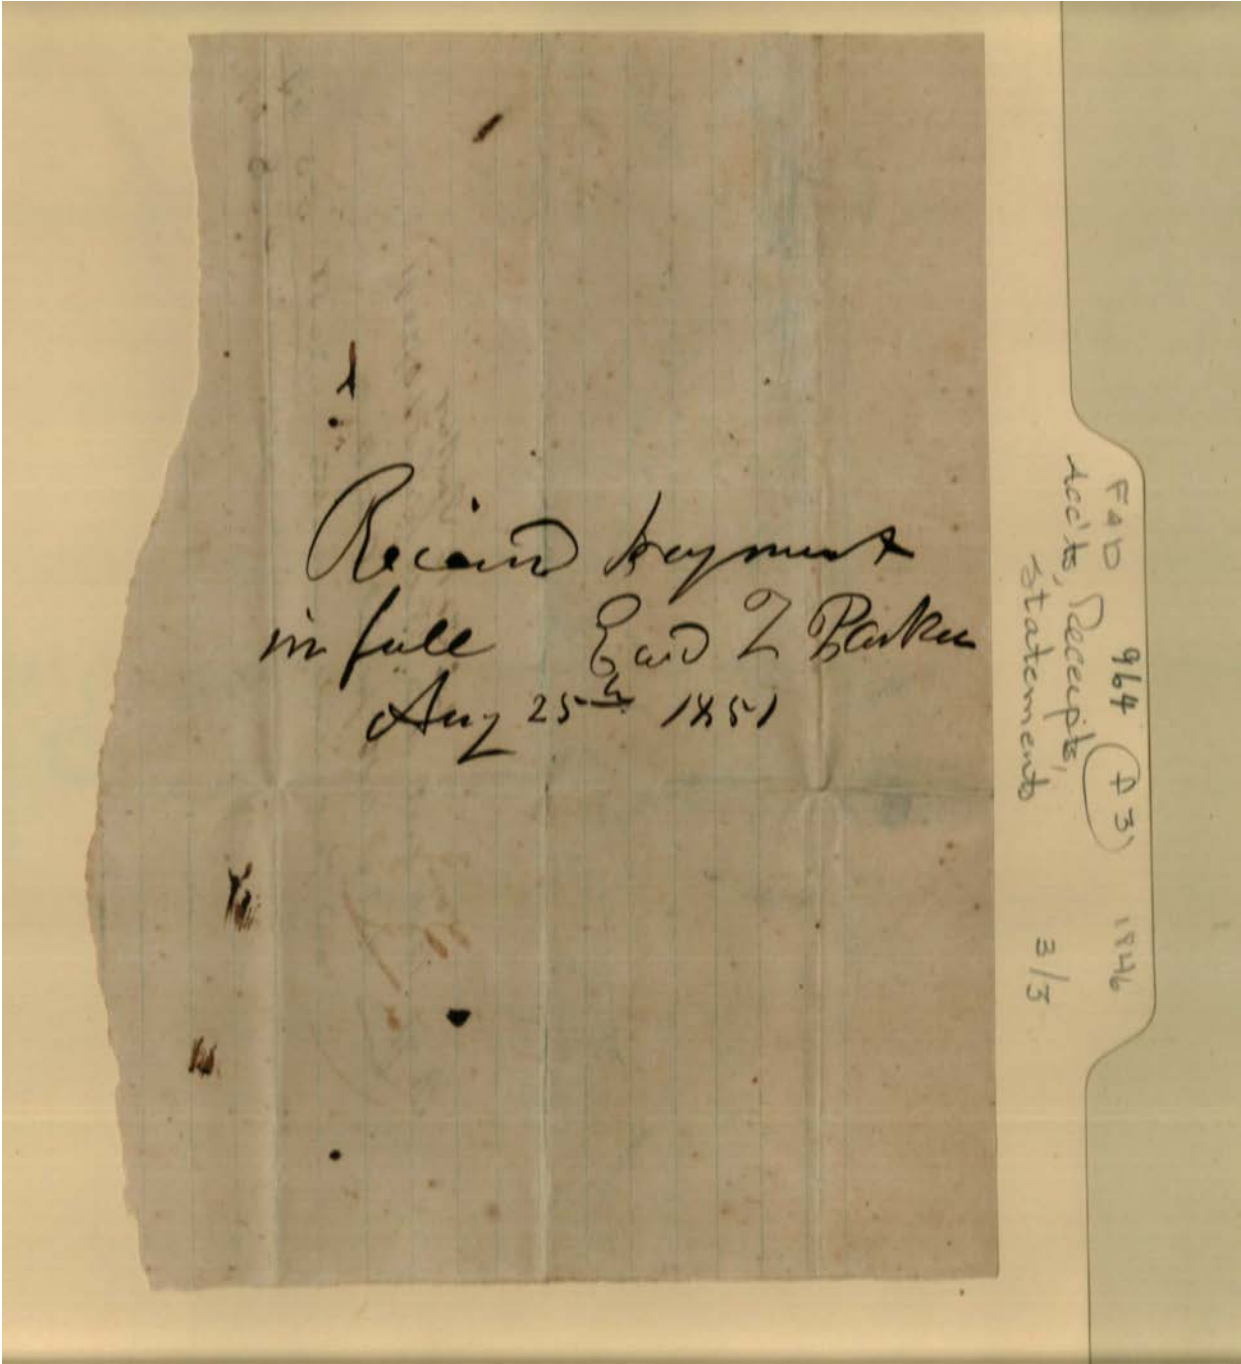 Recievd payment
in full Edwd L Parker
Aug 25th 1851
FAD 964 (P3) 1846
Acc'ts, Receipts,
Statements 3/3